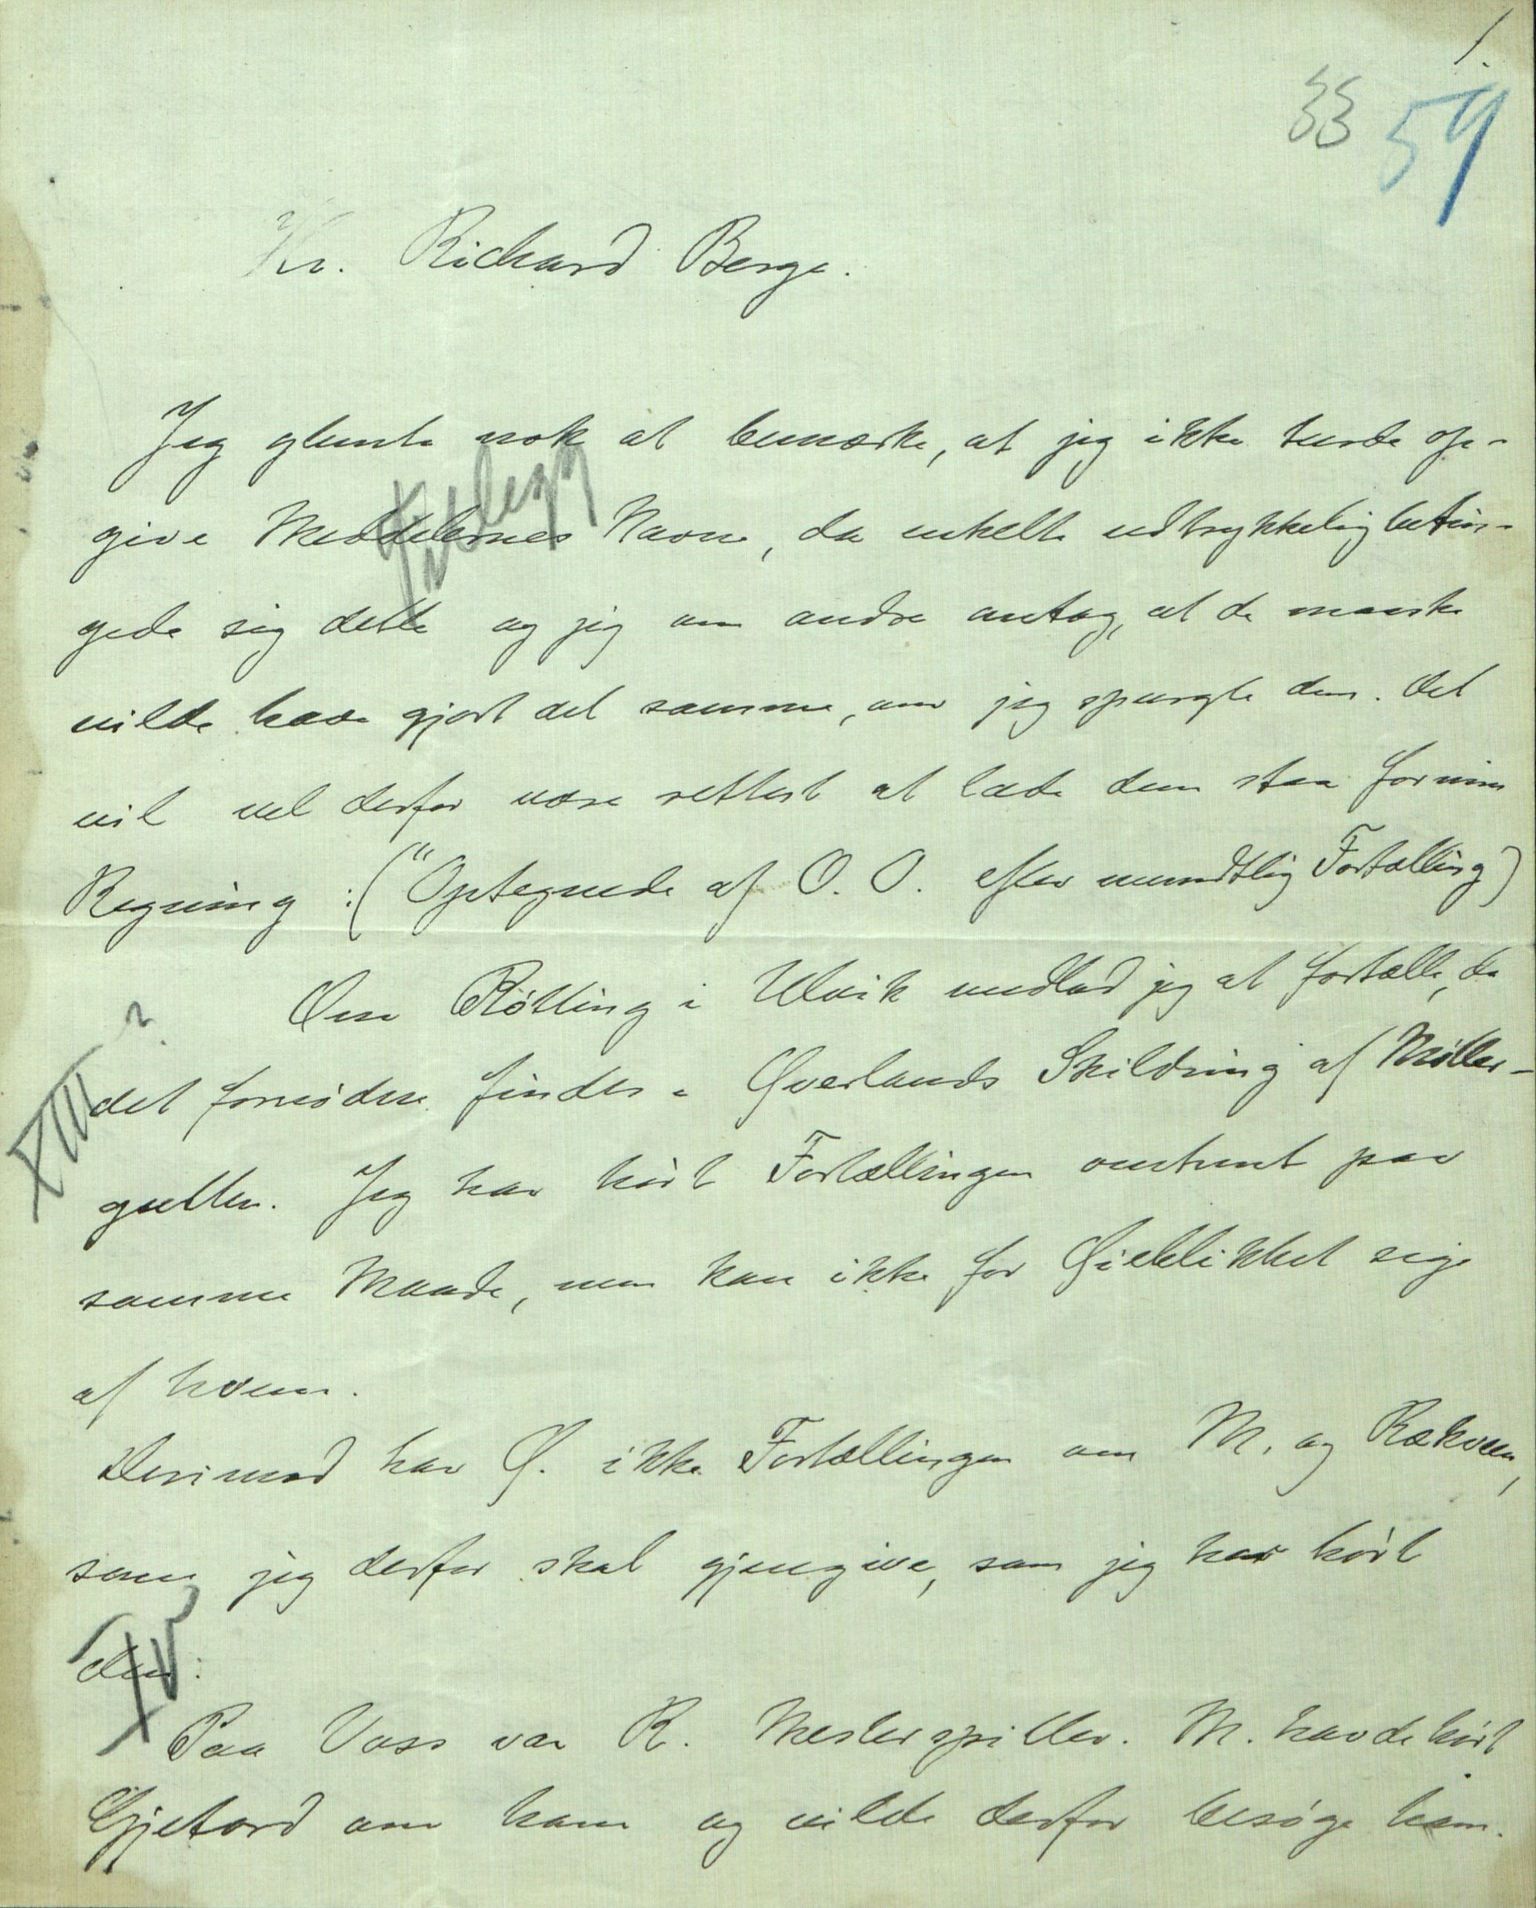 1.
33 59
Hr. Richard Berge.
Jeg glemte nok at bemærke, at jeg ikke turde op-
give Meddelernes Navne, da enkelte udtrykkelig betin-
gede sig dette og jeg om andre antog, at de maaske
vilde have gjort det samme, om jeg spurgte dem. Det
vil vel derfor være rettest at lade dem staa for min
Regning :("Optegnede af O. O. efter mundtlig Fortælling)
Om Røtting i Ulvik undlod jeg at fortælle, da
XIII?
det fornødne findes i Øverlands Skildring af Møller-
gutten. Jeg har hørt Fortællingen omtrent paa
samme Maade, men kan ikke for Øieblikket sige
af hvem.
Derimod har Ø. ikke Fortællingen om M. og Rækven,
som jeg derfor skal gjengive, som jeg har hørt
den:
XIV
Paa Voss var R. Mesterspiller. M. havde hørt
Gjetord om ham og vilde derfor besøge ham.